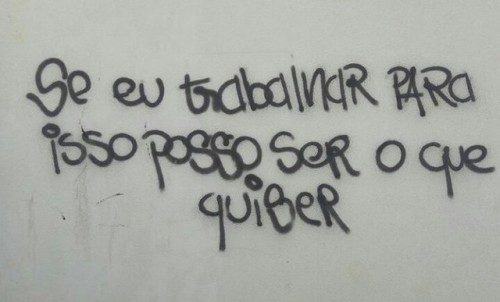 Se eu trabalhar PARA
isso posso ser o que
quiser